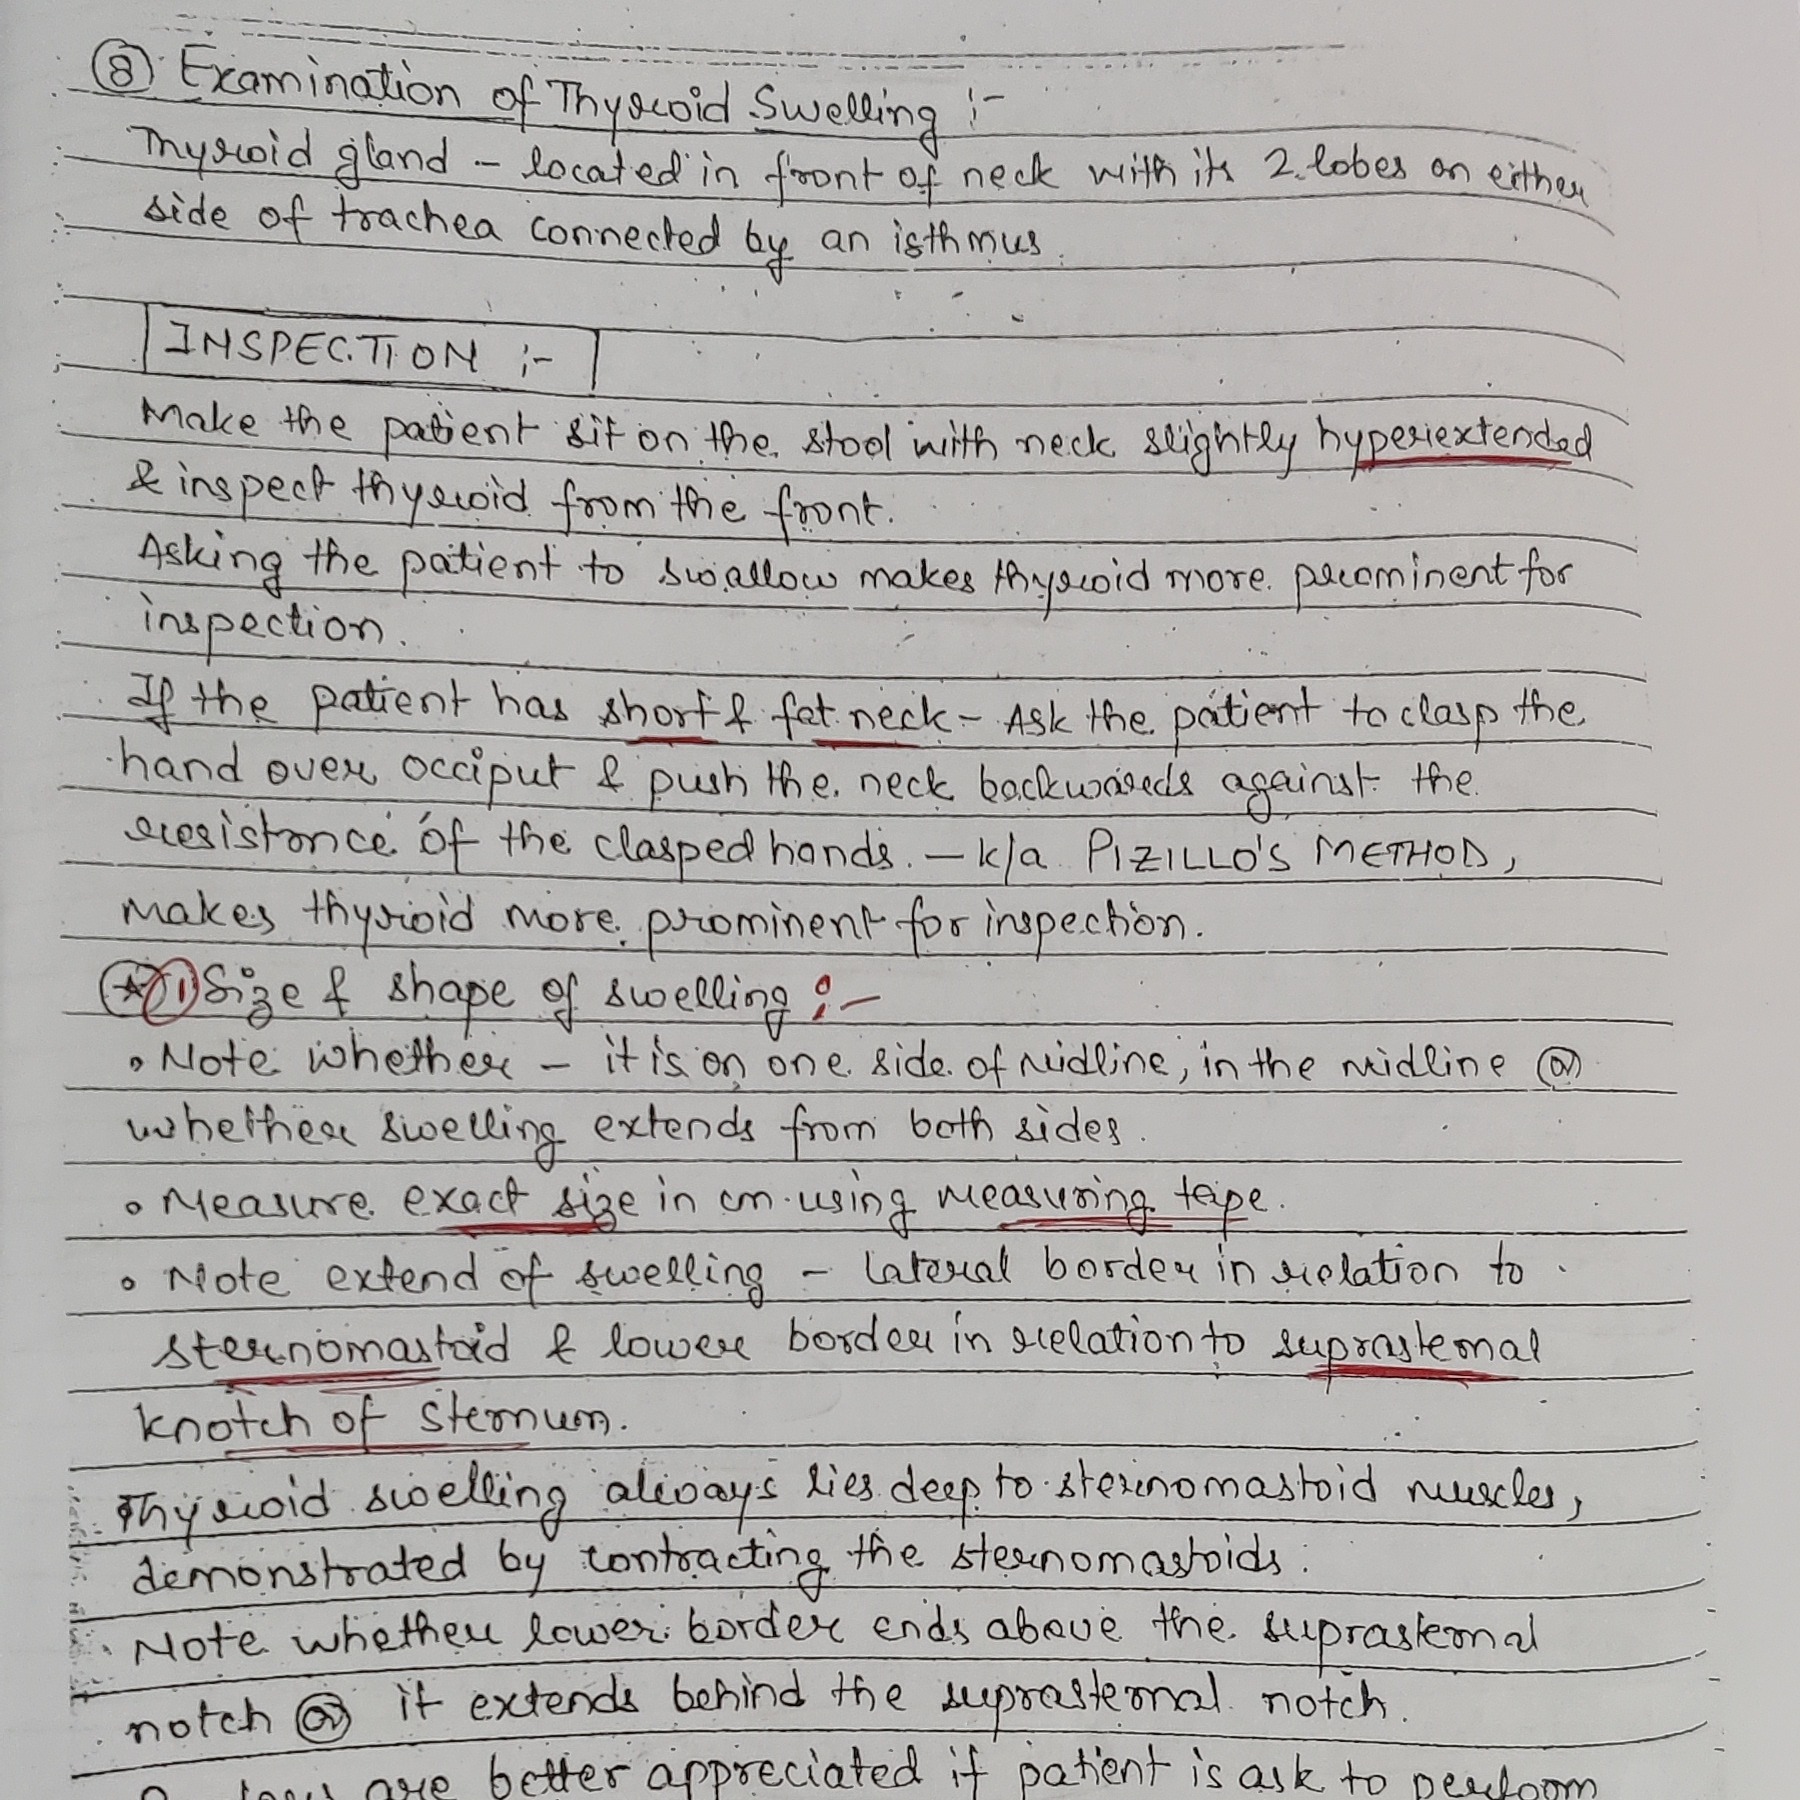 8 Examination of Thyroid Swelling :-
Thyroid gland - located in front of neck with its 2 lobes on either
side of trachea connected by an isthmus.
INSPECTION :-
Make the patient sit on the stool with neck slightly hyperextended
& inspect thyroid from the front.
Asking the patient to swallow makes thyroid more prominent for
inspection.
If the patient has short & fat neck - Ask the patient to clasp the
hand over occiput & push the neck backwards against the
resistance of the clasped hands. - k/a PIZILLO'S METHOD,
makes thyroid more prominent for inspection.
★ 1 Size & shape of swelling :-
• Note whether - it is on one side of midline, in the midline or
whether swelling extends from both sides.
• Measure exact size in cm using measuring tape.
• Note extend of swelling - lateral border in relation to
sternomastoid & lower border in relation to suprasternal
knotch of sternum.
Thyroid swelling always lies deep to sternomastoid muscles,
demonstrated by contracting the sternomastoids.
Note whether lower border ends above the suprasternal
notch or it extends behind the suprasternal notch.
are better appreciated if patient is ask to perform